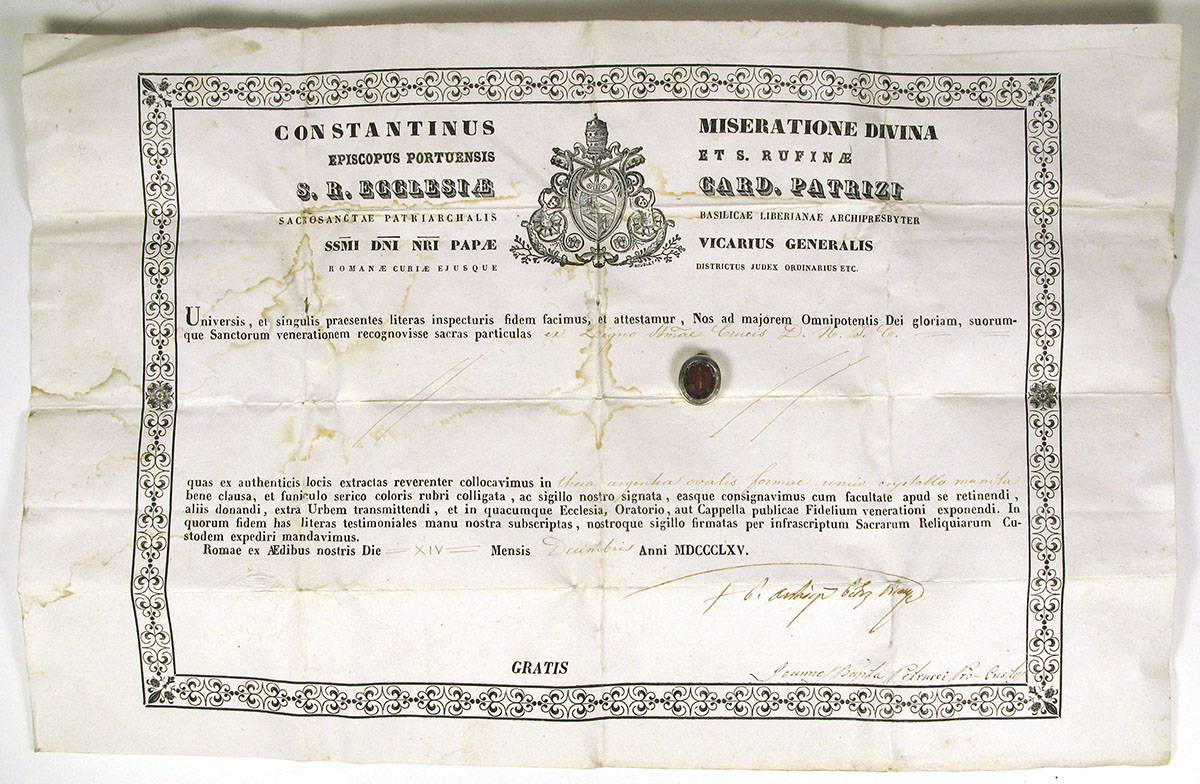 CONSTANTINUS MISERATIONE DIVINA
EPISCOPUS PORTUENSIS ET S. RUFINÆ
S. R. ECCLESIÆ CARD. PATRIZI
SACROSANCTAE PATRIARCHALIS BASILICAE LIBERIANAE ARCHIPRESBYTER
SSM̅I DN̅I NR̅I PAPÆ VICARIUS GENERALIS
ROMANÆ CURIÆ EJUSQUE DISTRICTUS JUDEX ORDINARIUS ETC.
Universis, et singulis praesentes literas inspecturis fidem facimus, et attestamur, Nos ad majorem Omnipotentis Dei gloriam, suorum-
que Sanctorum venerationem recognovisse sacras particulas ex Ligno Smae Crucis D. N. J. C.
quas ex authenticis locis extractas reverenter collocavimus in theca argentea ovalis formae unico crystallo munita
bene clausa, et funiculo serico coloris rubri colligata, ac sigillo nostro signata, easque consignavimus cum facultate apud se retinendi,
aliis donandi, extra Urbem transmittendi, et in quacumque Ecclesia, Oratorio, aut Cappella publicae Fidelium venerationi exponendi. In
quorum fidem has literas testimoniales manu nostra subscriptas, nostroque sigillo firmatas per infrascriptum Sacrarum Reliquiarum Cu-
stodem expediri mandavimus.
Romae ex Ædibus nostris Die XIV Mensis Decembris Anni MDCCCLXV.
GRATIS